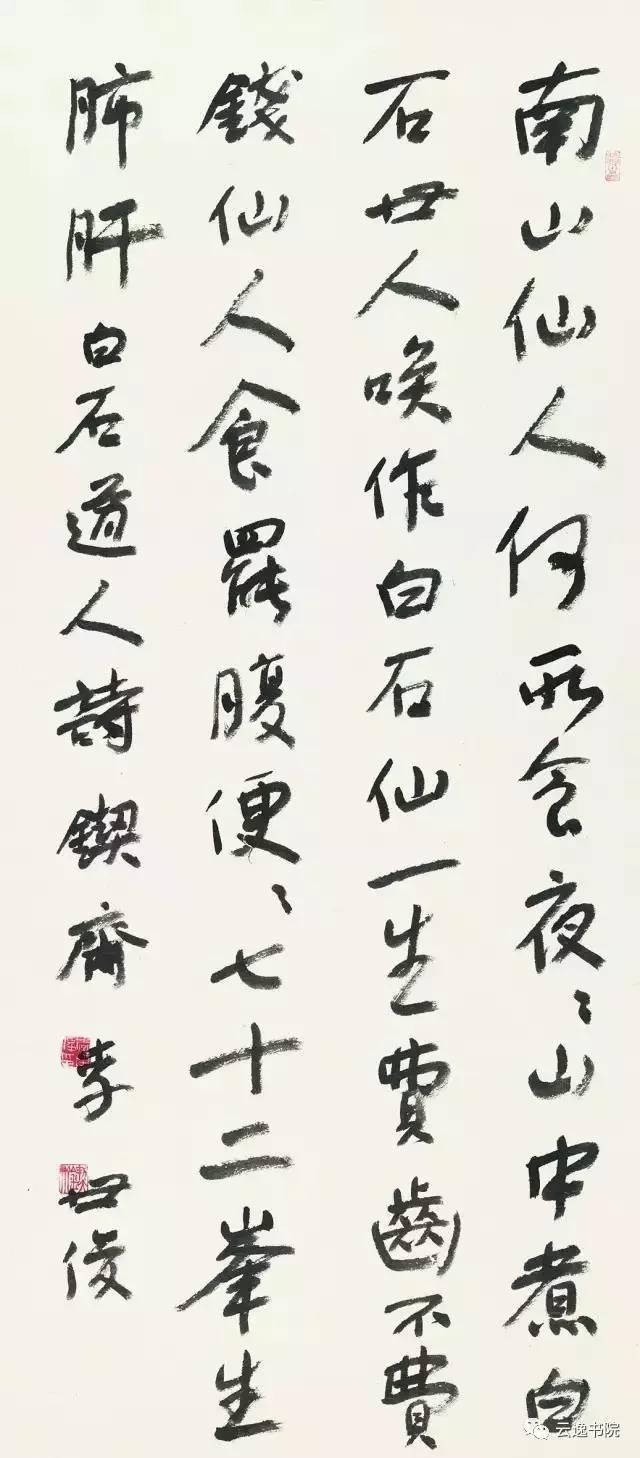 南山仙人何所食夜〻山中煮白
石世人唤作白石仙一生費齒不費
錢仙人食罷腹便〻七十二峯生
肺肝白石道人詩鍥齋李世俊
云逸书院